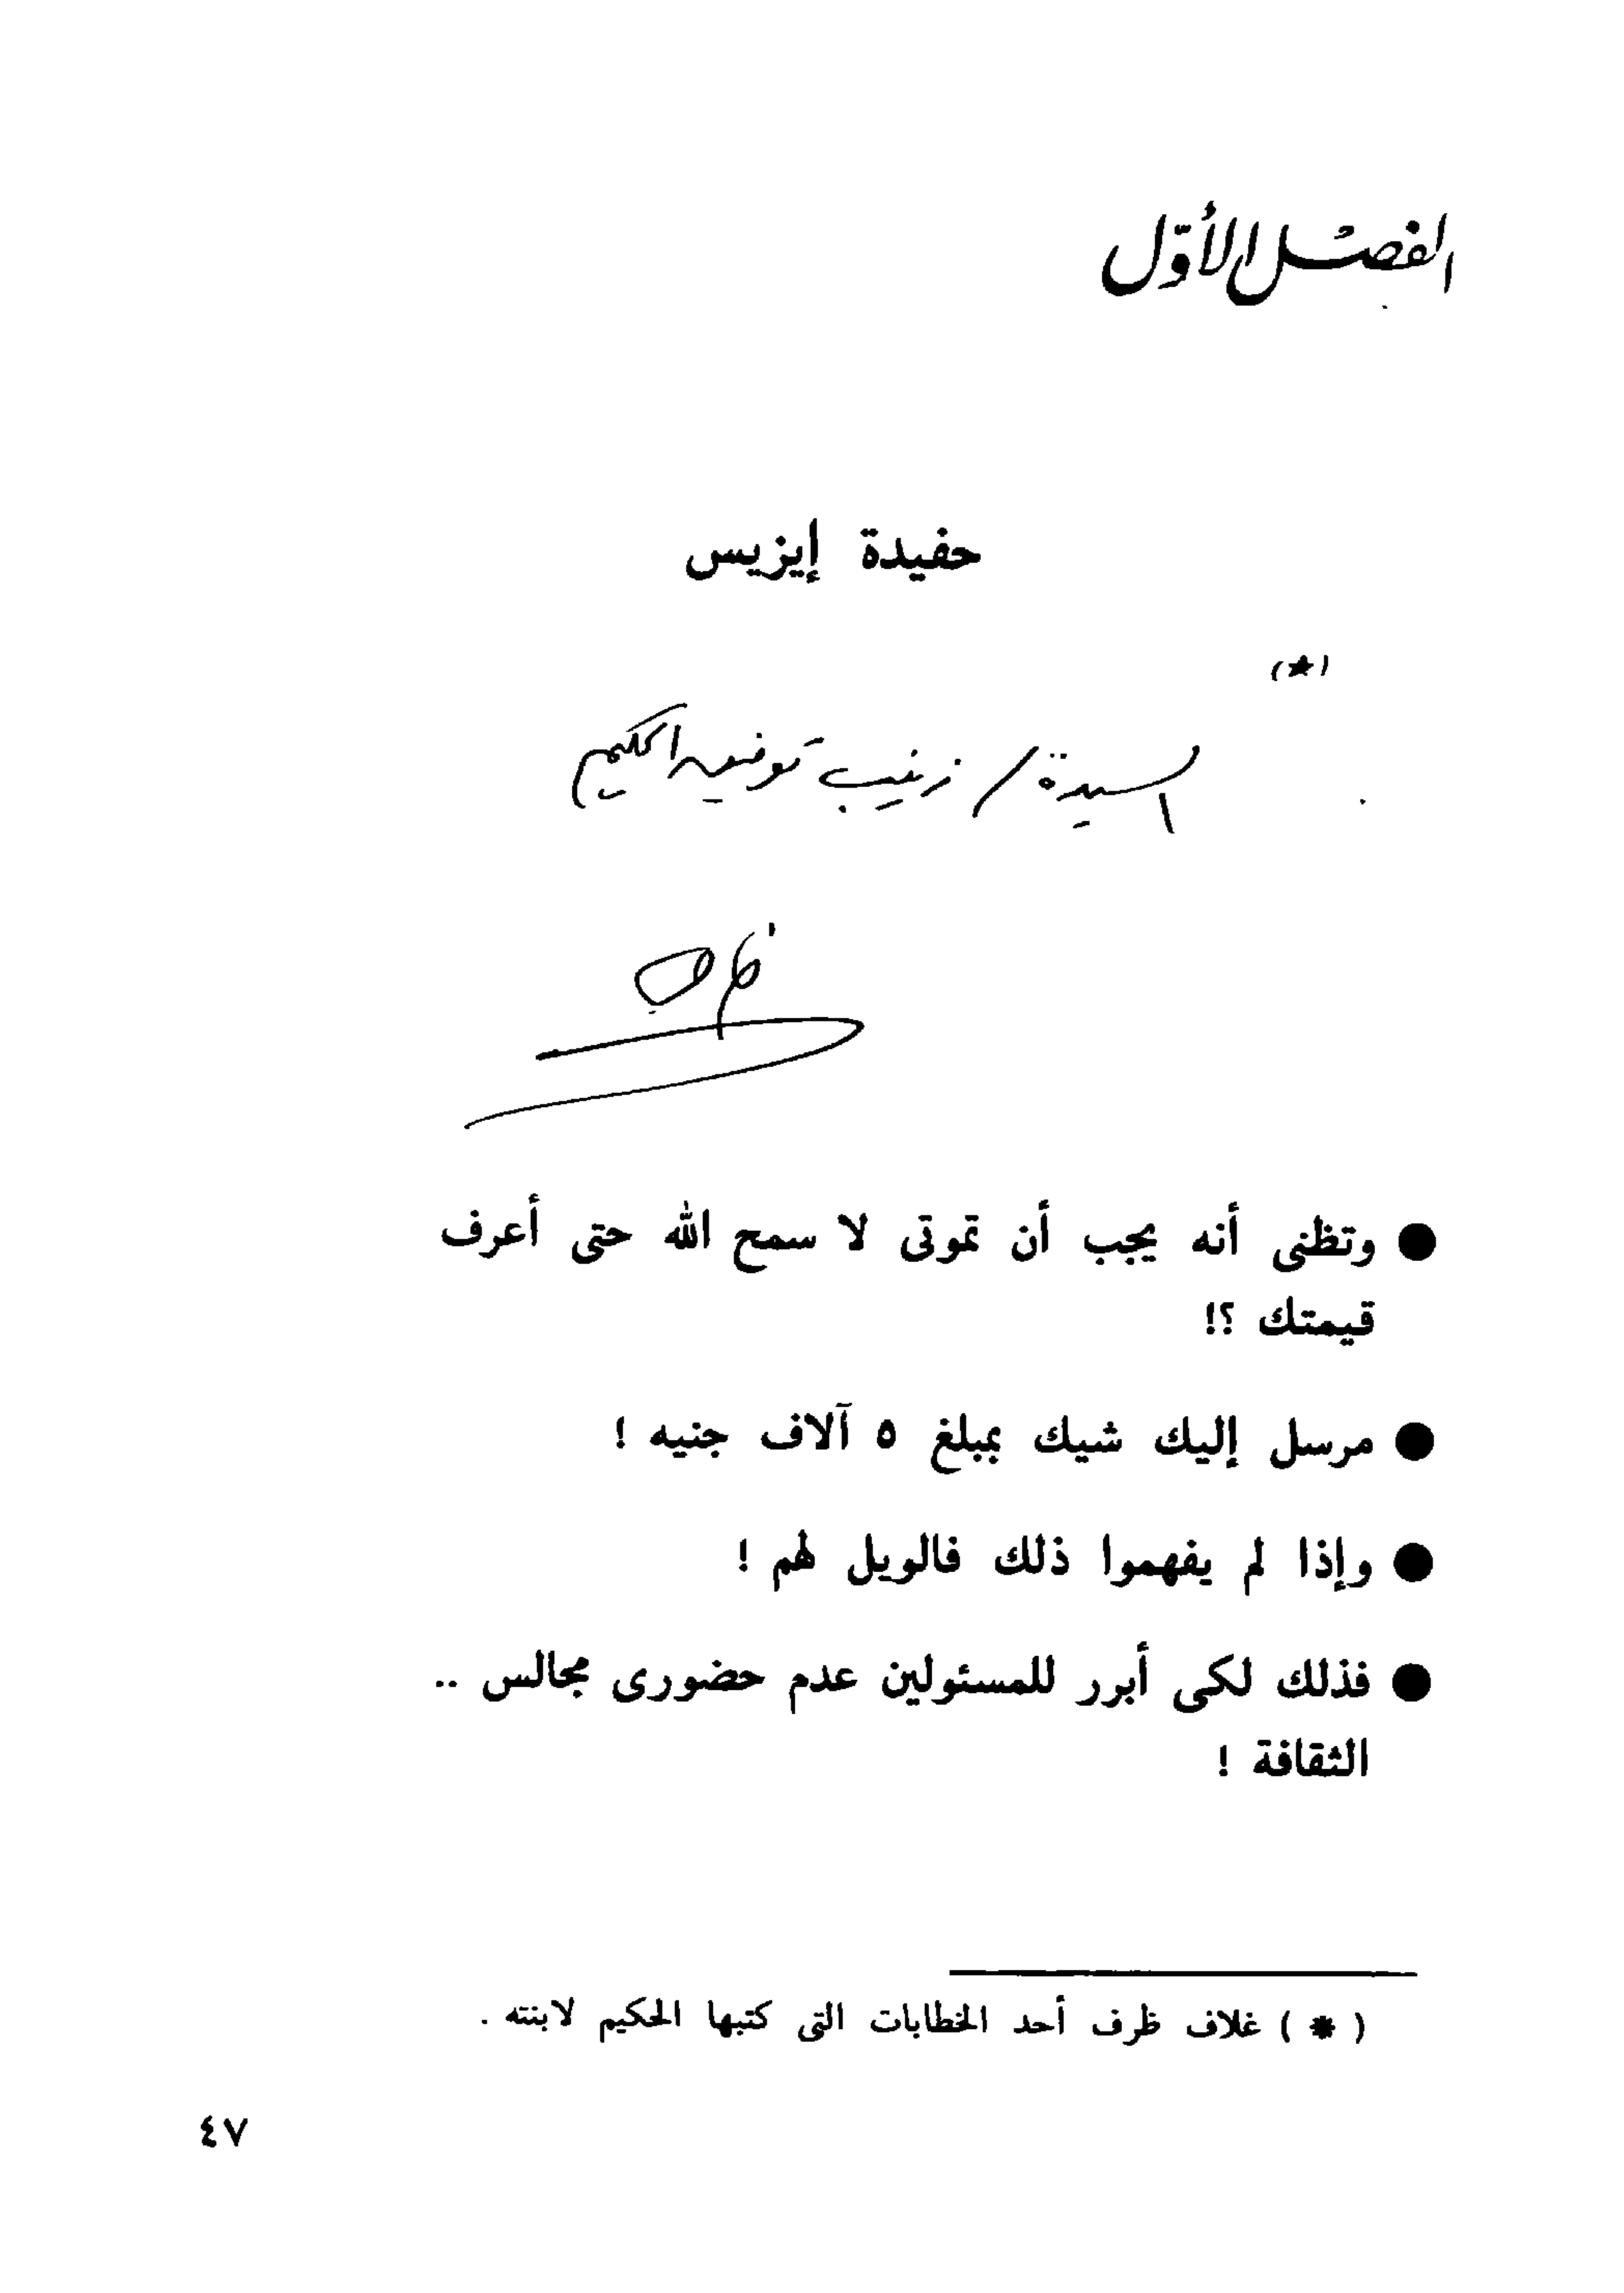 الفصل الأوّل
حفيدة إيزيس
(★)
السيدة / زينب توفيق الحكيم
وتظنى أنه يجب أن تموتى لا سمح الله حتى أعرف
قيمتك ؟!
مرسل إليك شيك بمبلغ ٥ آلاف جنيه !
وإذا لم يفهموا ذلك فالويل لهم !
فذلك لكى أبرر للمسئولين عدم حضورى مجالس ..
الثقافة !
( * ) غلاف ظرف أحد الخطابات التى كتبها الحكيم لابنته .
٤٧